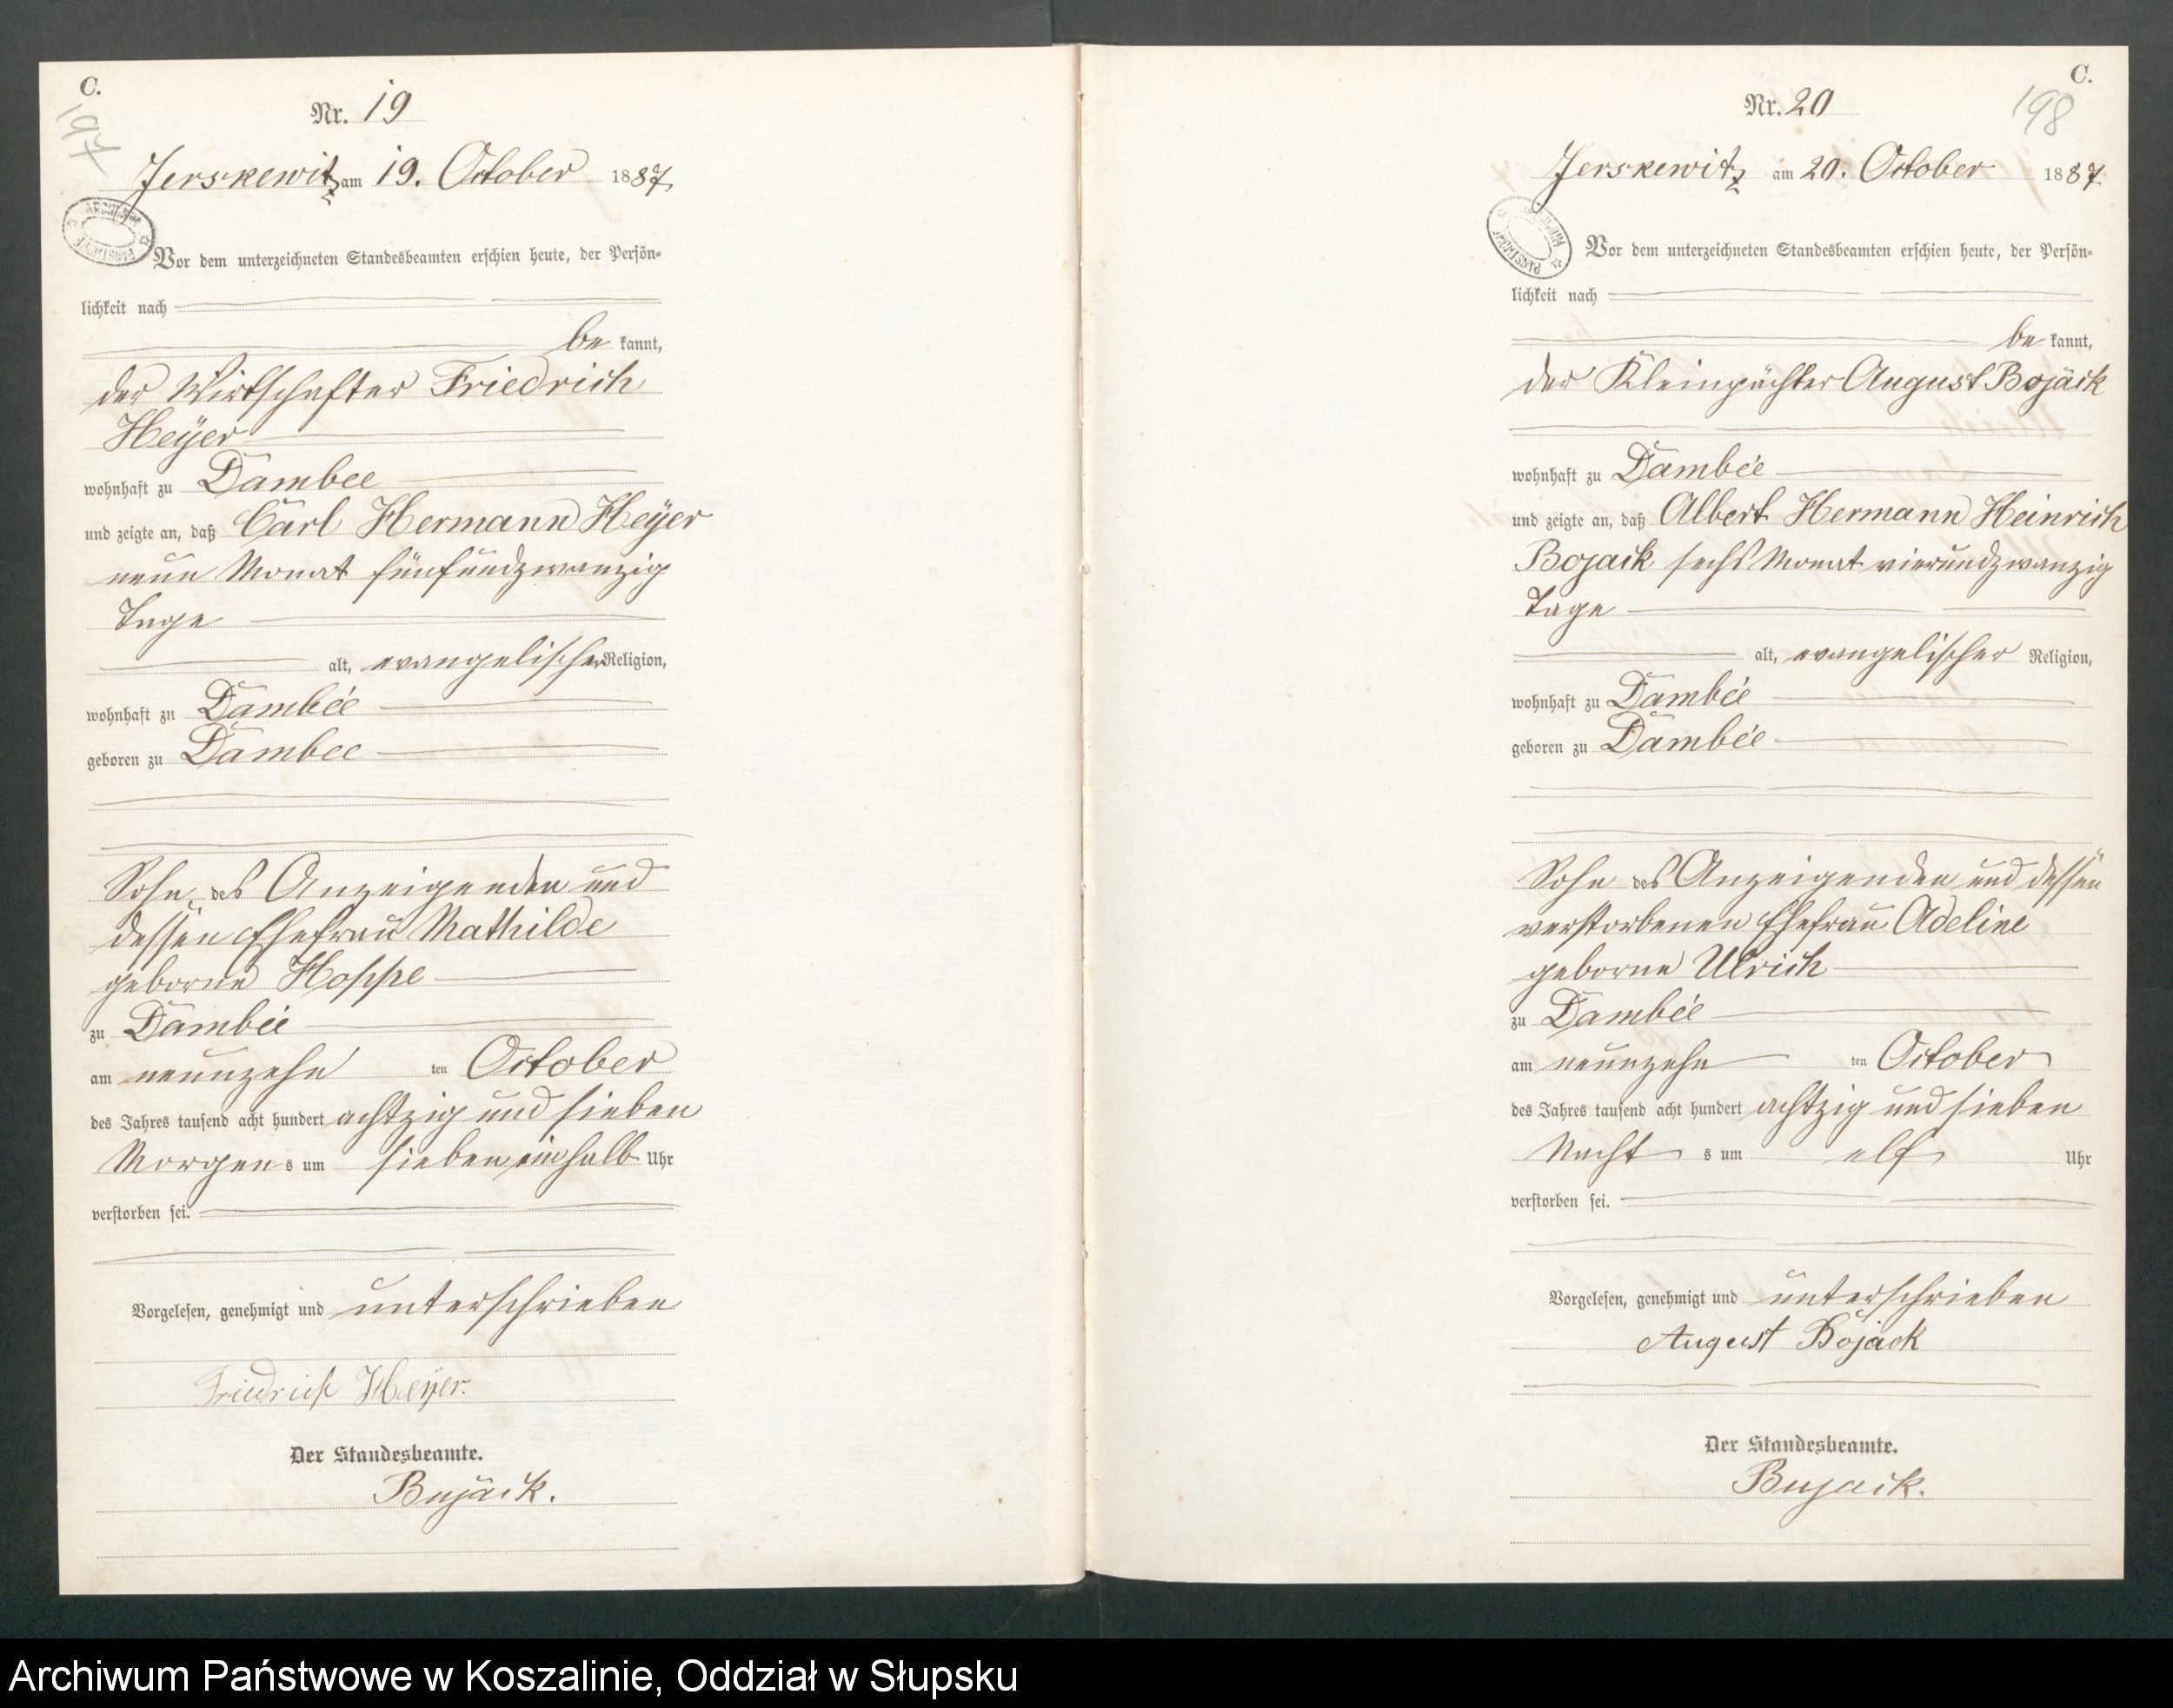 C.
197
Nr. 19
Jerskewitz am 19. October 1887
Vor dem unterzeichneten Standesbeamten erschien heute, der Persön-
lichkeit nach
be kannt,
der Wirtschafter Friedrich
Heÿer
wohnhaft zu Dambee
und zeigte an, daß Carl Hermann Heÿer
neun Monat fünfundzwanzig
Tage
alt, evangelischer Religion,
wohnhaft zu Dambée
geboren zu Dambee
Sohn des Anzeigenden und
dessen Ehefrau Mathilde
geborne Hoppe
zu Dambée
am neunzehn ten October
des Jahres tausend acht hundert achtzig und sieben
Morgens um sieben einhalb Uhr
verstorben sei.
Vorgelesen, genehmigt und unterschrieben
Friedrich Heyer.
Der Standesbeamte.
Bujack.
C.
198
Nr. 20
Jerskewitz am 20. October 1887
Vor dem unterzeichneten Standesbeamten erschien heute, der Persön-
lichkeit nach
be kannt,
der Kleinpächter August Bojack
wohnhaft zu Dambée
und zeigte an, daß Albert Hermann Heinrich
Bojack sechs Monat vierundzwanzig
Tage
alt, evangelischer Religion,
wohnhaft zu Dambée
geboren zu Dambée
Sohn des Anzeigenden und dessen
verstorbenen Ehefrau Adeline
geborne Ulrich
zu Dambée
am neunzehn ten October
des Jahres tausend acht hundert achtzig und sieben
Nachts um elf Uhr
verstorben sei.
Vorgelesen, genehmigt und unterschrieben
August Bojack
Der Standesbeamte.
Bujack.
Archiwum Państwowe w Koszalinie, Oddział w Słupsku